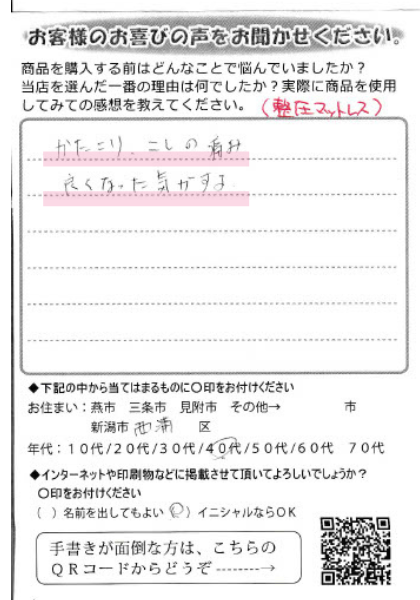 お客様のお喜びの声をお聞かせください。
商品を購入する前はどんなことで悩んでいましたか？
当店を選んだ一番の理由は何でしたか？実際に商品を使用
してみての感想を教えてください。（整圧マットレス）
かたこり、こしの痛み
良くなった気がする
◆下記の中から当てはまるものに○印をお付けください
お住まい：燕市　三条市　見附市　その他→　　　　市
新潟市 西蒲 区
年代：１０代/２０代/３０代/４０代/５０代/６０代　７０代
◆インターネットや印刷物などに掲載させて頂いてよろしいでしょうか？
○印をお付けください
（　）名前を出してもよい（○）イニシャルならＯＫ
手書きが面倒な方は、こちらの
ＱＲコードからどうぞ--------→